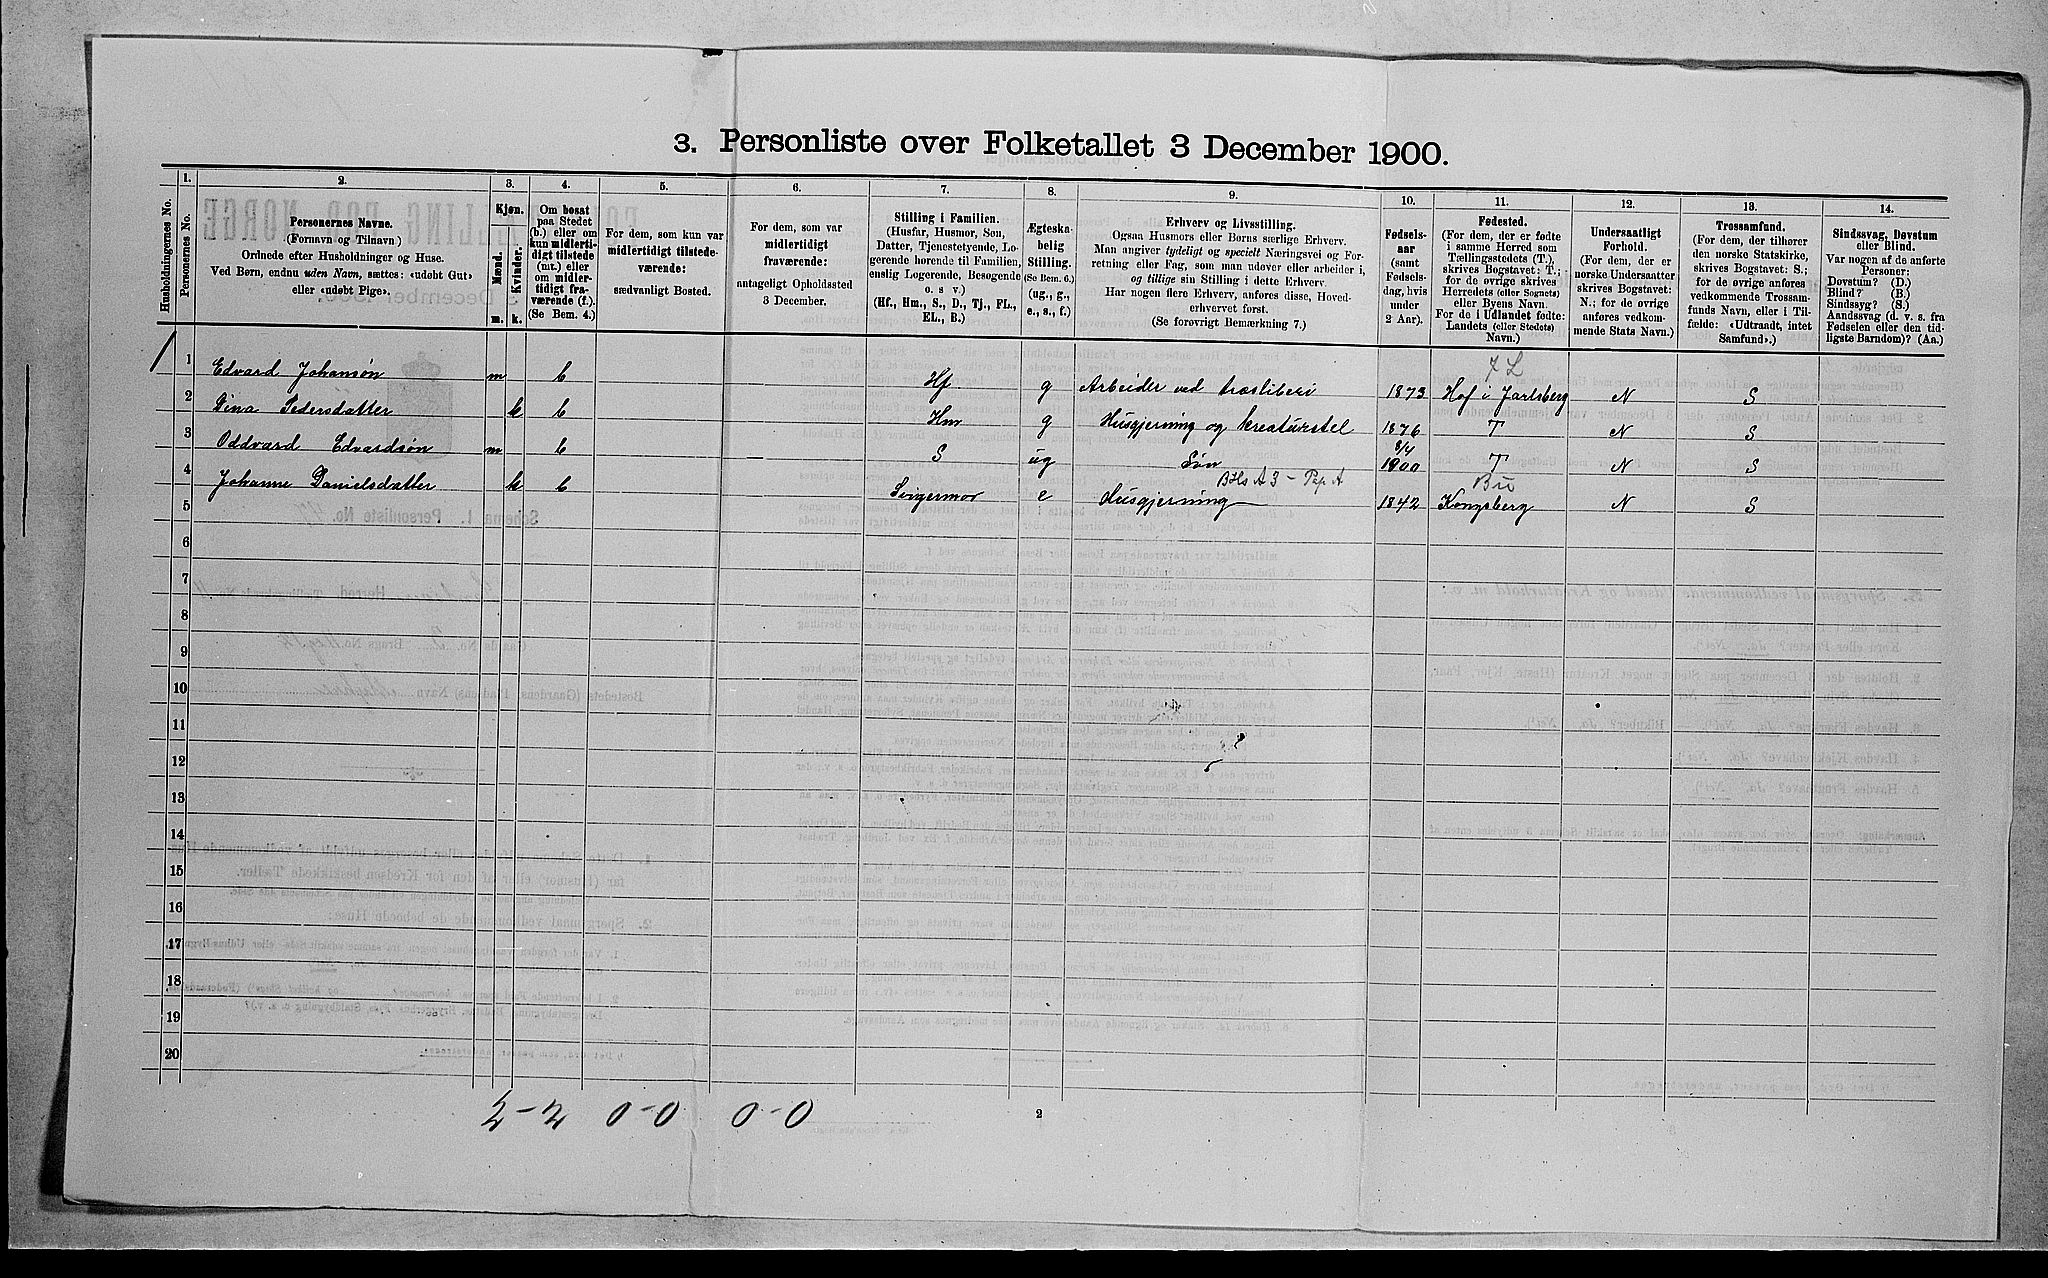 3. Personliste over Folketallet 3 December 1900.
Husholdningernes No.
1.
Personernes No.
2.
Personernes Navne.
(Fornavn og Tilnavn)
Ordnede efter Husholdninger og Huse.
Ved Børn, endnu uden Navn, sættes: «udøbt Gut»
eller «udøbt Pige».
3.
Kjøn.
Mænd.
Kvinder.
m.
k.
4.
Om bosat
paa Stedet
(b.) eller om
kun midlerti-
digt tilstede
(mt.) eller
om midler-
tidigt fra-
værende (f.).
(Se Bem. 4.)
5.
For dem, som kun var
midlertidigt tilstede-
værende:
sædvanligt Bosted.
6.
For dem, som var
midlertidigt
fraværende:
antageligt Opholdssted
3 December.
7.
Stilling i Familien.
(Husfar, Husmor, Søn,
Datter, Tjenestetyende, Lo-
gerende hørende til Familien,
enslig Logerende, Besøgende
o. s v.)
(Hf., Hm., S., D., Tj., FL.,
EL., B.)
8.
Ægteska-
belig
Stilling.
(Se Bem. 6.)
(ug., g.,
e., s., f.)
9.
Erhverv og Livsstilling.
Ogsaa Husmors eller Børns særlige Erhverv.
Man angiver tydeligt og specielt Næringsvei og For-
retning eller Fag, som man udøver eller arbeider i,
og tillige sin Stilling i dette Erhverv.
Har nogen flere Erhverv, anføres disse, Hoved-
erhvervet først.
(Se forøvrigt Bemærkning 7.)
10.
Fødsels-
aar
(samt
Fødsels-
dag, hvis
under
2 Aar).
11.
Fødested.
(For dem, der er fødte
i samme Herred som
Tællingsstedets (T.),
skrives Bogstavet: T.;
for de øvrige skrives
Herredets (eller Sognets)
eller Byens Navn.
For de i Udlandet fødte:
Landets (eller Stedets)
Navn.)
12.
Undersaatligt
Forhold.
(For dem, der er
norske Undersaatter
skrives Bogstavet:
N.; for de øvrige
anføres vedkom-
mende Stats Navn.)
13.
Trossamfund.
(For dem, der tilhører
den norske Statskirke,
skrives Bogstavet: S.;
for de øvrige anføres
vedkommende Trossam-
funds Navn, eller i Til-
fælde: «Udtraadt, intet
Samfund».)
14.
Sindssvag, Døvstum
eller Blind.
Var nogen af de anførte
Personer:
Døvstum? (D.)
Blind? (B.)
Sindssyg? (S.)
Aandssvag (d. v. s. fra
Fødselen eller den tid-
ligste Barndom)? (Aa.)
JL
1 1 Edvard Johansøn m b Hf g Arbeider ved træsliberi 1873 Hof i Jarlsberg N S
2 Dina Pedersdatter k b Hm g Husgjerning og kreaturstel 1876 T N S
3 Oddvard Edvardsøn m b S ug Søn 8/4 1900 T N S
BHs A3 - Pap A Bu
4 Johanne Danielsdatter k b Svigermor e Husgjerning 1842 Kongsberg N S
5
6
7
8
9
10
11
12
13
14
15
16
17
18
19
20
2-2 0-0 0-0
2